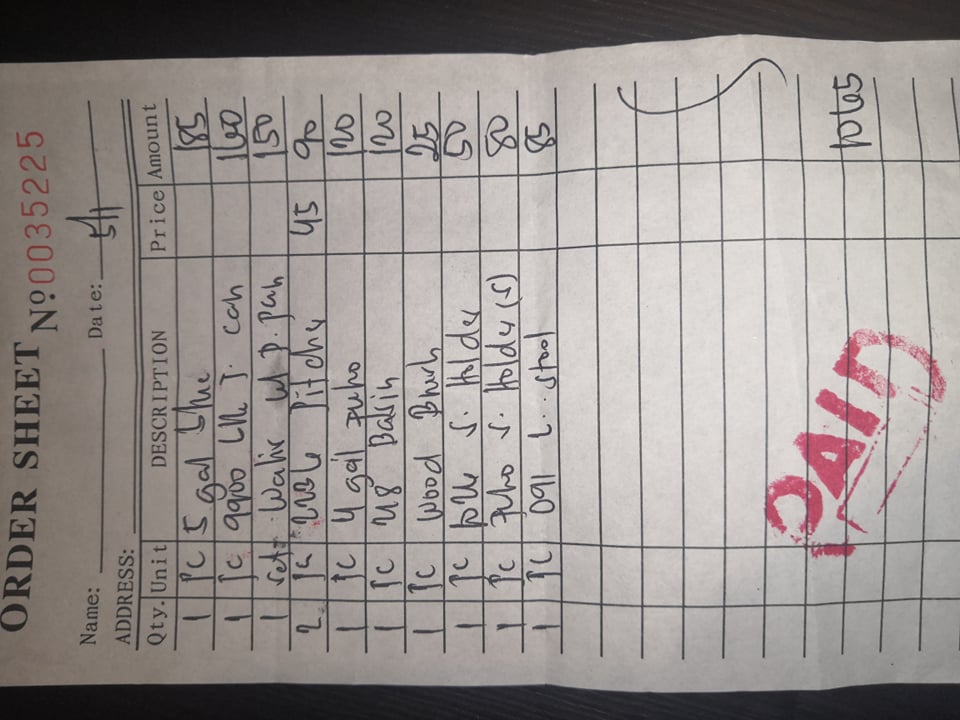 ORDER SHEET
Nº 0035225
Name: Date: 5/11
ADDRESS:
Qty. Unit DESCRIPTION Price Amount
1 pc 5 gal blue 185
1 pc 9900 J. can 160
1 set w/ p. pan 150
2 pc 2236 pitcher 45 90
1 pc 4 gal Juho 120
1 pc 48 Basin 120
1 pc Wood Brush 25
1 pc S. Holder 50
1 pc Juho S. Holder (S) 80
1 pc 091 L. Stool 85
1065
PAID